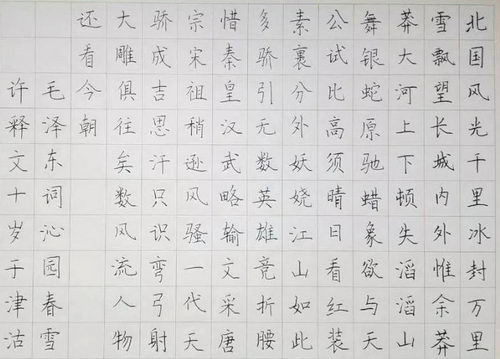 北国风光千里冰封万里
雪飘望长城内外惟余莽
莽大河上下顿失滔滔山
舞银蛇原驰蜡象欲与天
公试比高须晴日看红装
素裹分外妖娆江山如此
多骄引无数英雄竞折腰
惜秦皇汉武略输文采唐
宗宋祖稍逊风骚一代天
骄成吉思汗只识弯弓射
大雕俱往矣数风流人物
还看今朝
毛泽东词沁园春雪
许释文十岁于津沽